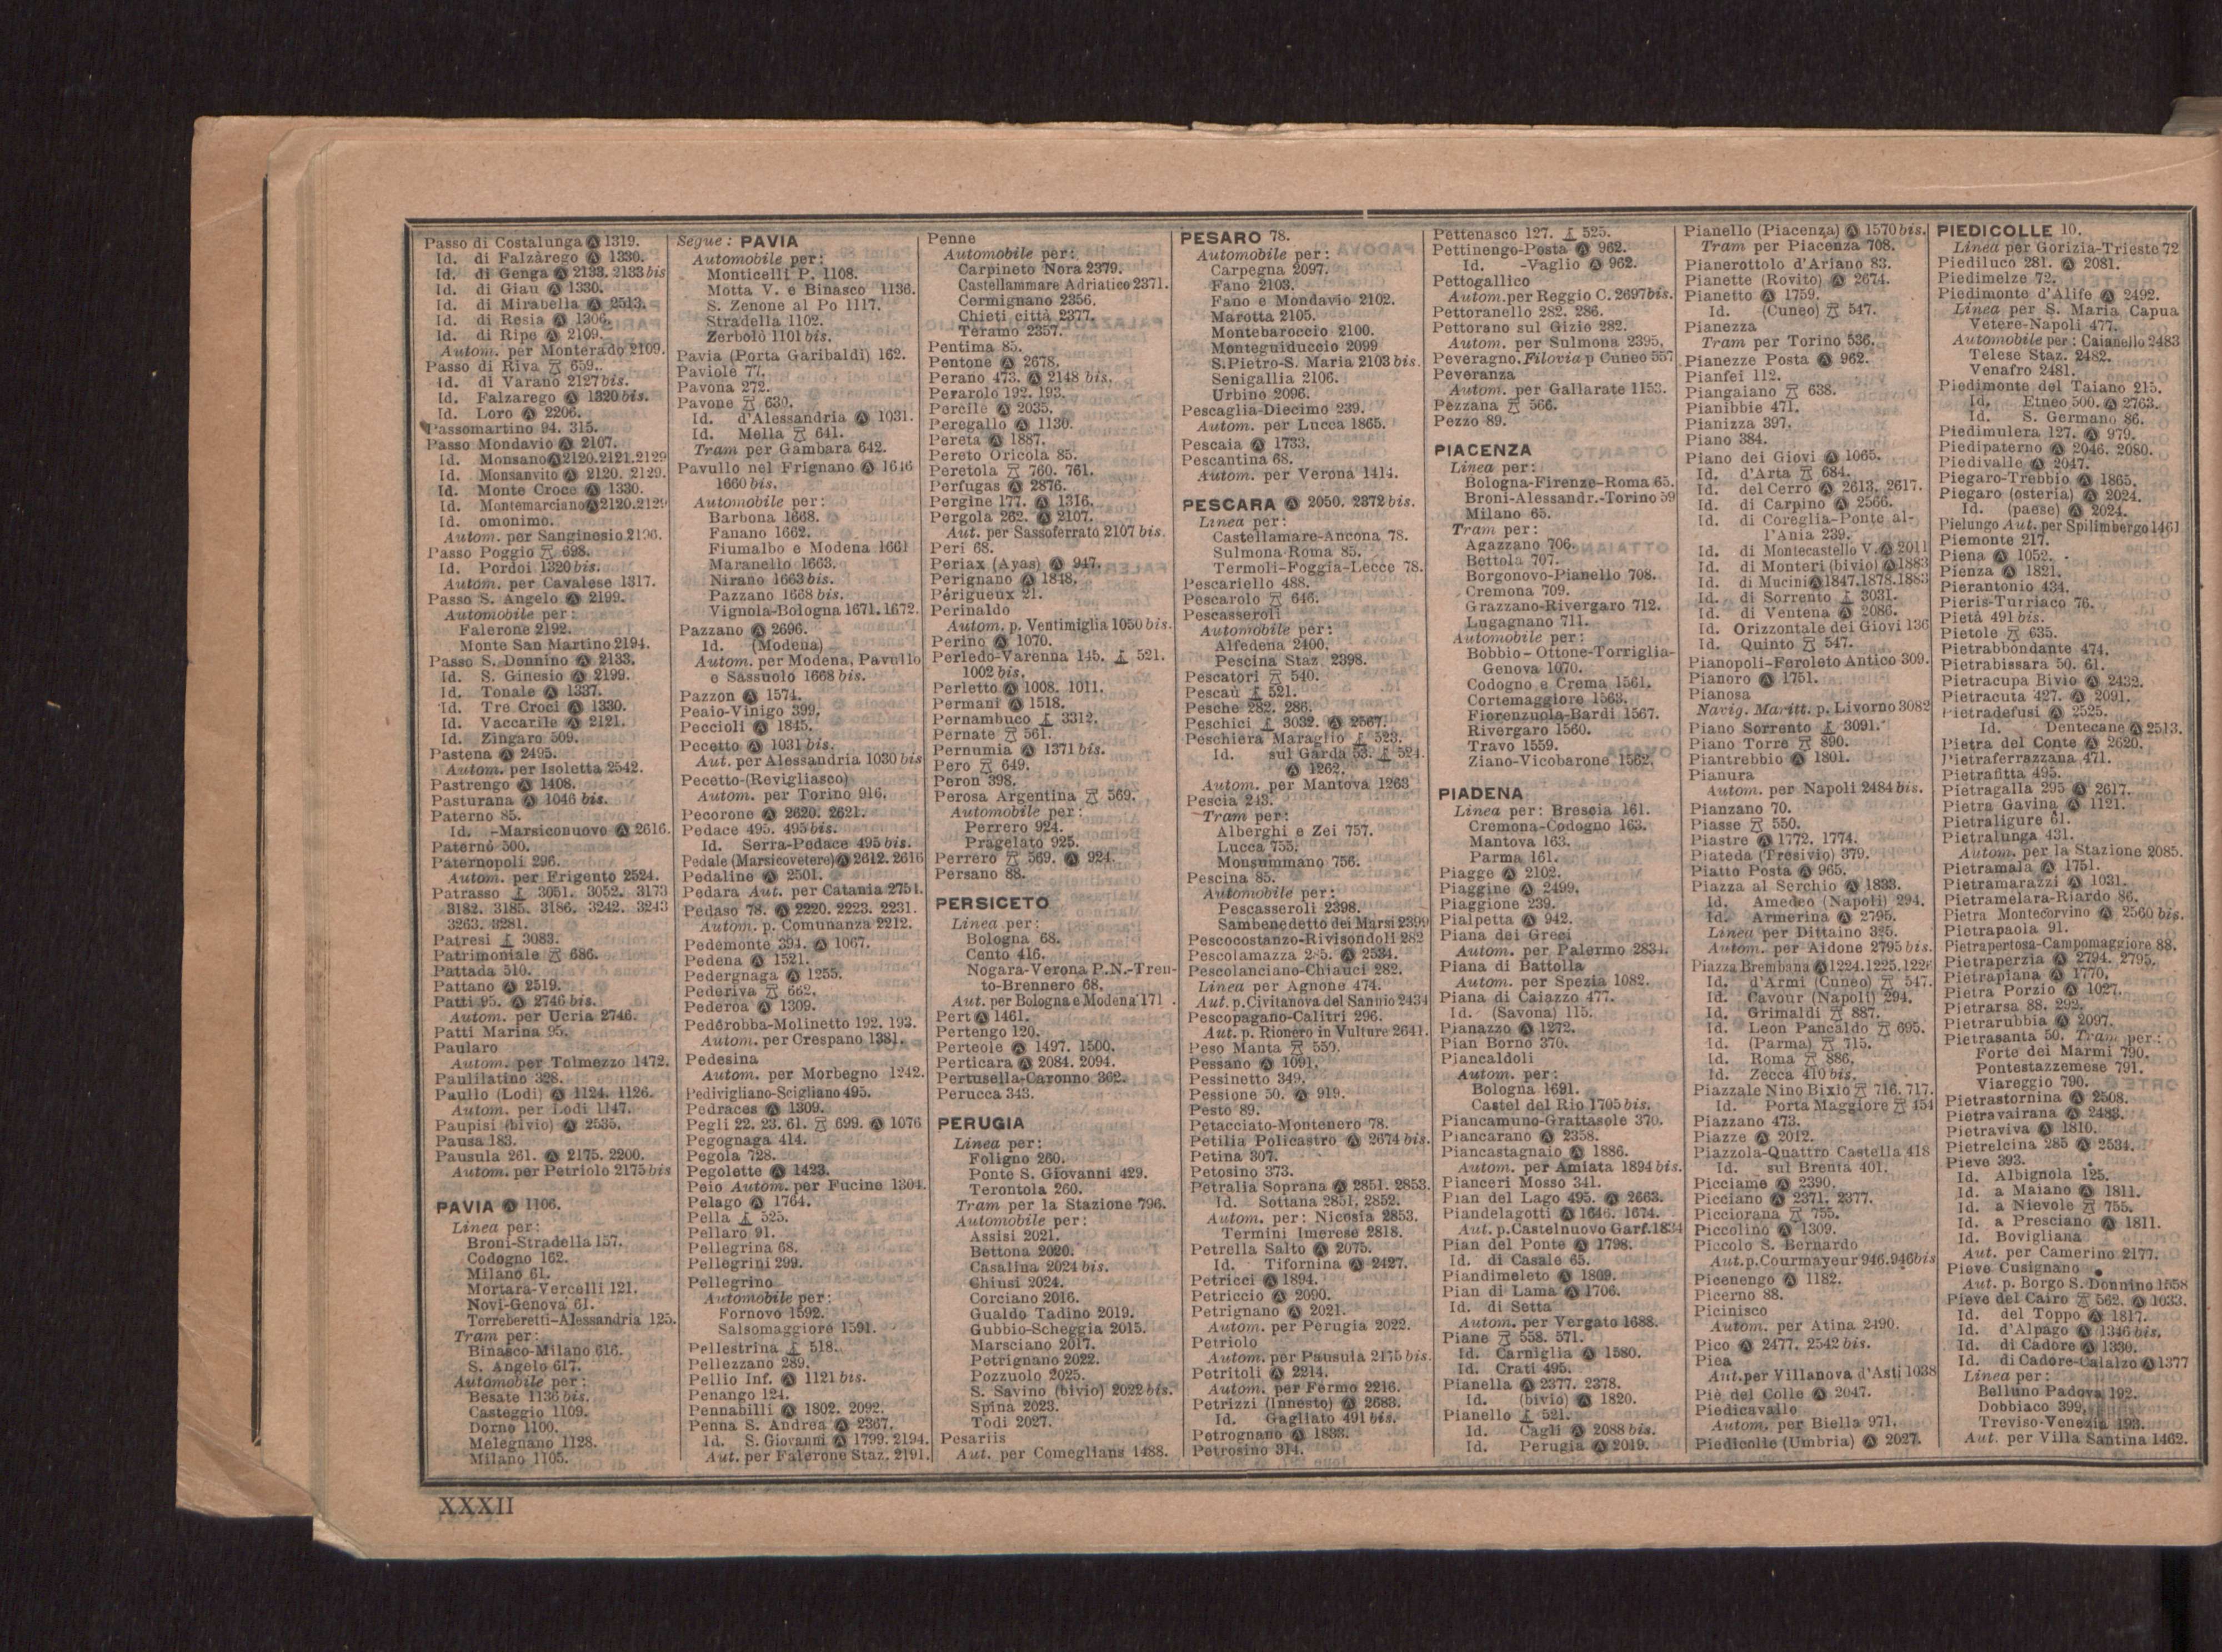 Passo di Costalunga Ⓐ 1319.
Id. di Falzàrego Ⓐ 1330.
Id. di Genga Ⓐ 2133. 2133 bis
Id. di Giau Ⓐ 1330.
Id. di Mirabella Ⓐ 2513.
Id. di Resia Ⓐ 1306.
Id. di Ripe Ⓐ 2109.
Autom. per Monterado 2109.
Passo di Riva 659.
Id. di Varano 2127 bis.
Id. Falzarego Ⓐ 1320 bis.
Id. Loro Ⓐ 2206.
Passomartino 94. 315.
Passo Mondavio Ⓐ 2107.
Id. Monsano Ⓐ 2120.2121.2129
Id. Monsanvito Ⓐ 2120. 2129.
Id. Monte Croce Ⓐ 1330.
Id. Montemarciano Ⓐ 2120.2129
Id. omonimo.
Autom. per Sanginesio 2196.
Passo Poggio 698.
Id. Pordoi 1320 bis.
Autom. per Cavalese 1317.
Passo S. Angelo Ⓐ 2199.
Automobile per:
Falerone 2192.
Monte San Martino 2194.
Passo S. Donnino Ⓐ 2133.
Id. S. Ginesio Ⓐ 2199.
Id. Tonale Ⓐ 1337.
Id. Tre Croci Ⓐ 1330.
Id. Vaccarile Ⓐ 2121.
Id. Zingaro 509.
Pastena Ⓐ 2495.
Autom. per Isoletta 2542.
Pastrengo Ⓐ 1408.
Pasturana Ⓐ 1046 bis.
Paterno 85.
Id. -Marsiconuovo Ⓐ 2616.
Paternò 500.
Paternopoli 296.
Autom. per Frigento 2524.
Patrasso 3051. 3052. 3173
3182. 3185. 3186. 3242. 3243
3263. 3281.
Patresi 3083.
Patrimoniale 686.
Pattada 510.
Pattano Ⓐ 2519.
Patti 95. Ⓐ 2746 bis.
Autom. per Ucria 2746.
Patti Marina 95.
Paularo
Autom. per Tolmezzo 1472.
Paulilatino 328.
Paullo (Lodi) Ⓐ 1124. 1126.
Autom. per Lodi 1147.
Paupisi (bivio) Ⓐ 2535.
Pausa 183.
Pausula 261. Ⓐ 2175. 2200.
Autom. per Petriolo 2175 bis
PAVIA Ⓐ 1106.
Linea per:
Broni-Stradella 157.
Codogno 162.
Milano 61.
Mortara-Vercelli 121.
Novi-Genova 61.
Torreberetti-Alessandria 125.
Tram per:
Binasco-Milano 616.
S. Angelo 617.
Automobile per:
Besate 1136 bis.
Casteggio 1109.
Dorno 1100.
Melegnano 1128.
Milano 1105.
Segue: PAVIA
Automobile per:
Monticelli P. 1108.
Motta V. e Binasco 1136.
S. Zenone al Po 1117.
Stradella 1102.
Zerbolò 1101 bis.
Pavia (Porta Garibaldi) 162.
Paviole 77.
Pavona 272.
Pavone 630.
Id. d'Alessandria Ⓐ 1031.
Id. Mella 641.
Tram per Gambara 642.
Pavullo nel Frignano Ⓐ 1646
1660 bis.
Automobile per:
Barbona 1668.
Fanano 1662.
Fiumalbo e Modena 1661
Maranello 1663.
Nirano 1663 bis.
Pazzano 1668 bis.
Vignola-Bologna 1671. 1672.
Pazzano Ⓐ 2696.
Id. (Modena)
Autom. per Modena, Pavullo
e Sassuolo 1668 bis.
Pazzon Ⓐ 1574.
Peaio-Vinigo 399.
Peccioli Ⓐ 1845.
Pecetto Ⓐ 1031 bis.
Aut. per Alessandria 1030 bis
Pecetto-(Revigliasco)
Autom. per Torino 916.
Pecorone Ⓐ 2620. 2621.
Pedace 495. 495 bis.
Id. Serra-Pedace 495 bis.
Pedale (Marsicovetere) Ⓐ 2612. 2616
Pedaline Ⓐ 2501.
Pedara Aut. per Catania 2751.
Pedaso 78. Ⓐ 2220. 2223. 2231.
Autom. p. Comunanza 2212.
Pedemonte 394. Ⓐ 1067.
Pedena Ⓐ 1521.
Pedergnaga Ⓐ 1255.
Pederiva 662.
Pederoa Ⓐ 1309.
Pederobba-Molinetto 192. 193.
Autom. per Crespano 1381.
Pedesina
Autom. per Morbegno 1242.
Pedivigliano-Scigliano 495.
Pedraces Ⓐ 1309.
Pegli 22. 23. 61. 699. Ⓐ 1076
Pegognaga 414.
Pegola 728.
Pegolette Ⓐ 1423.
Peio Autom. per Fucine 1304.
Pelago Ⓐ 1764.
Pella 525.
Pellaro 91.
Pellegrina 68.
Pellegrini 299.
Pellegrino
Automobile per:
Fornovo 1592.
Salsomaggiore 1591.
Pellestrina 518.
Pellezzano 289.
Pellio Inf. Ⓐ 1121 bis.
Penango 124.
Pennabilli Ⓐ 1802. 2092.
Penna S. Andrea Ⓐ 2367.
Id. S. Giovanni Ⓐ 1799. 2194.
Aut. per Falerone Staz. 2191.
Penne
Automobile per:
Carpineto Nora 2379.
Castellammare Adriatico 2371.
Cermignano 2356.
Chieti città 2377.
Teramo 2357.
Pentima 85.
Pentone Ⓐ 2678.
Perano 473. Ⓐ 2148 bis.
Perarolo 192. 193.
Percile Ⓐ 2035.
Peregallo Ⓐ 1130.
Pereta Ⓐ 1887.
Pereto Oricola 85.
Peretola 760. 761.
Perfugas Ⓐ 2876.
Pergine 177. Ⓐ 1316.
Pergola 262. Ⓐ 2107.
Aut. per Sassoferrato 2107 bis.
Peri 68.
Periax (Ayas) Ⓐ 947.
Perignano Ⓐ 1848.
Périgueux 21.
Perinaldo
Autom. p. Ventimiglia 1050 bis.
Perino Ⓐ 1070.
Perledo-Varenna 145. 521.
1002 bis.
Perletto Ⓐ 1008. 1011.
Permani Ⓐ 1518.
Pernambuco 3312.
Pernate 561.
Pernumia Ⓐ 1371 bis.
Pero 649.
Peron 398.
Perosa Argentina 569.
Automobile per:
Perrero 924.
Pragelato 925.
Perrero 569. Ⓐ 924.
Persano 88.
PERSICETO
Linea per:
Bologna 68.
Cento 416.
Nogara-Verona P.N.-Tren-
to-Brennero 68.
Aut. per Bologna e Modena 171 .
Pert Ⓐ 1461.
Pertengo 120.
Perteole Ⓐ 1497. 1500.
Perticara Ⓐ 2084. 2094.
Pertusella-Caronno 362.
Perucca 343.
PERUGIA
Linea per:
Foligno 260.
Ponte S. Giovanni 429.
Terontola 260.
Tram per la Stazione 796.
Automobile per:
Assisi 2021.
Bettona 2020.
Casalina 2024 bis.
Chiusi 2024.
Corciano 2016.
Gualdo Tadino 2019.
Gubbio-Scheggia 2015.
Marsciano 2017.
Petrignano 2022.
Pozzuolo 2025.
S. Savino (bivio) 2022 bis.
Spina 2023.
Todi 2027.
Pesariis
Aut. per Comeglians 1488.
PESARO 78.
Automobile per:
Carpegna 2097.
Fano 2103.
Fano e Mondavio 2102.
Marotta 2105.
Montebaroccio 2100.
Monteguiduccio 2099
S. Pietro-S. Maria 2103 bis.
Senigallia 2106.
Urbino 2096.
Pescaglia-Diecimo 239.
Autom. per Lucca 1865.
Pescaia Ⓐ 1733.
Pescantina 68.
Autom. per Verona 1414.
PESCARA Ⓐ 2050. 2372 bis.
Linea per:
Castellamare-Ancona 78.
Sulmona Roma 85.
Termoli-Foggia-Lecce 78.
Pescariello 488.
Pescarolo 646.
Pescasseroli
Automobile per:
Alfedena 2400.
Pescina Staz. 2398.
Pescatori 540.
Pescaù 521.
Pesche 282. 286.
Peschici 3032. Ⓐ 2567.
Peschiera Maraglio 523.
Id. sul Garda 53. 524
Ⓐ 1262.
Autom. per Mantova 1263
Pescia 243.
Tram per:
Alberghi e Zei 757.
Lucca 755.
Monsummano 756.
Pescina 85.
Automobile per:
Pescasseroli 2398.
Sambenedetto dei Marsi 2399
Pescocostanzo-Rivisondoli 282
Pescolamazza 285. Ⓐ 2534.
Pescolanciano-Chiauci 282.
Linea per Agnone 474.
Aut. p. Civitanova del Sannio 2434
Pescopagano-Calitri 296.
Aut. p. Rionero in Vulture 2641.
Peso Manta 550.
Pessano Ⓐ 1091.
Pessinetto 349.
Pessione 50. Ⓐ 919.
Pesto 89.
Petacciato-Montenero 78.
Petilia Policastro Ⓐ 2674 bis.
Petina 307.
Petosino 373.
Petralia Soprana Ⓐ 2851. 2853.
Id. Sottana 2851. 2852.
Autom. per: Nicosia 2853.
Termini Imerese 2818.
Petrella Salto Ⓐ 2075.
Id. Tifornina Ⓐ 2427.
Petricci Ⓐ 1894.
Petriccio Ⓐ 2090.
Petrignano Ⓐ 2021.
Autom. per Perugia 2022.
Petriolo
Autom. per Pausula 2175 bis.
Petritoli Ⓐ 2214.
Autom. per Fermo 2216.
Petrizzi (Innesto) Ⓐ 2683.
Id. Gagliato 491 bis.
Petrognano Ⓐ 1833.
Petrosino 314.
Pettenasco 127. 525.
Pettinengo-Posta Ⓐ 962.
Id. -Vaglio Ⓐ 962.
Pettogallico
Autom. per Reggio C. 2697 bis.
Pettoranello 282. 286.
Pettorano sul Gizio 282.
Autom. per Sulmona 2395.
Peveragno. Filovia p Cuneo 557
Peveranza
Autom. per Gallarate 1153.
Pezzana 566.
Pezzo 89.
PIACENZA
Linea per:
Bologna-Firenze-Roma 65.
Broni-Alessandr.-Torino 59
Milano 65.
Tram per:
Agazzano 706.
Bettola 707.
Borgonovo-Pianello 708.
Cremona 709.
Grazzano-Rivergaro 712.
Lugagnano 711.
Automobile per:
Bobbio-Ottone-Torriglia-
Genova 1070.
Codogno e Crema 1561.
Cortemaggiore 1563.
Fiorenzuola-Bardi 1567.
Rivergaro 1560.
Travo 1559.
Ziano-Vicobarone 1562.
PIADENA
Linea per: Brescia 161.
Cremona-Codogno 163.
Mantova 163.
Parma 161.
Piagge Ⓐ 2102.
Piaggine Ⓐ 2499.
Piaggione 239.
Pialpetta Ⓐ 942.
Piana dei Greci
Autom. per Palermo 2834.
Piana di Battolla
Autom. per Spezia 1082.
Piana di Caiazzo 477.
Id. (Savona) 115.
Pianazzo Ⓐ 1272.
Pian Borno 370.
Piancaldoli
Autom. per:
Bologna 1691.
Castel del Rio 1705 bis.
Piancamuno-Grattasole 370.
Piancarano Ⓐ 2358.
Piancastagnaio Ⓐ 1886.
Autom. per Amiata 1894 bis.
Pianceri Mosso 341.
Pian del Lago 495. Ⓐ 2663.
Piandelagotti Ⓐ 1646. 1674.
Aut. p. Castelnuovo Garf. 1834
Pian del Ponte Ⓐ 1798.
Id. di Casale 65.
Piandimeleto Ⓐ 1809.
Pian di Lama Ⓐ 1706.
Id. di Setta
Autom. per Vergato 1688.
Piane 558. 571.
Id. Carniglia Ⓐ 1580.
Id. Crati 495.
Pianella Ⓐ 2377. 2378.
Id. (bivio) Ⓐ 1820.
Pianello 521.
Id. Cagli Ⓐ 2088 bis.
Id. Perugia Ⓐ 2019.
Pianello (Piacenza) Ⓐ 1570 bis.
Tram per Piacenza 708.
Pianerottolo d'Ariano 83.
Pianette (Rovito) Ⓐ 2674.
Pianetto Ⓐ 1759.
Id. (Cuneo) 547.
Pianezza
Tram per Torino 536.
Pianezze Posta Ⓐ 962.
Pianfei 112.
Piangaiano 638.
Pianibbie 471.
Pianizza 397.
Piano 384.
Piano dei Giovi Ⓐ 1065.
Id. d'Arta 684.
Id. del Cerro Ⓐ 2613. 2617.
Id. di Carpino Ⓐ 2566.
Id. di Coreglia-Ponte al-
l'Ania 239.
Id. di Montecastello V. Ⓐ 2011
Id. di Monteri (bivio) Ⓐ 1883
Id. di Mucini Ⓐ 1847.1878.1883
Id. di Sorrento 3031.
Id. di Ventena Ⓐ 2086.
Id. Orizzontale dei Giovi 136
Id. Quinto 547.
Pianopoli-Feroleto Antico 309.
Pianoro Ⓐ 1751.
Pianosa
Navig. Maritt. p. Livorno 3082
Piano Sorrento 3091.
Piano Torre 890.
Piantrebbio Ⓐ 1801.
Pianura
Autom. per Napoli 2484 bis.
Pianzano 70.
Piasse 550.
Piastre Ⓐ 1772. 1774.
Piateda (Tresivio) 379.
Piatto Posta Ⓐ 965.
Piazza al Serchio Ⓐ 1833.
Id. Amedeo (Napoli) 294.
Id. Armerina Ⓐ 2795.
Linea per Dittaino 325.
Autom. per Aidone 2795 bis.
Piazza Brembana Ⓐ 1224.1225.1226
Id. d'Armi (Cuneo) 547.
Id. Cavour (Napoli) 294.
Id. Grimaldi 887.
Id. Leon Pancaldo 695.
Id. (Parma) 715.
Id. Roma 886.
Id. Zecca 410 bis.
Piazzale Nino Bixio 716. 717.
Id. Porta Maggiore 454
Piazzano 473.
Piazze Ⓐ 2012.
Piazzola-Quattro Castella 418
Id. sul Brenta 401.
Picciame Ⓐ 2390.
Picciano Ⓐ 2371. 2377.
Picciorana 755.
Piccolino Ⓐ 1309.
Piccolo S. Bernardo
Aut. p. Courmayeur 946.946 bis
Picenengo Ⓐ 1182.
Picerno 88.
Picinisco
Autom. per Atina 2490.
Pico Ⓐ 2477. 2542 bis.
Piea
Aut. per Villanova d'Asti 1038
Piè del Colle Ⓐ 2047.
Piedicavallo
Autom. per Biella 971.
Piedicolle (Umbria) Ⓐ 2027.
PIEDICOLLE 10.
Linea per Gorizia-Trieste 72
Piediluco 281. Ⓐ 2081.
Piedimelze 72.
Piedimonte d'Alife Ⓐ 2492.
Linea per S. Maria Capua
Vetere-Napoli 477.
Automobile per: Caianello 2483
Telese Staz. 2482.
Venafro 2481.
Piedimonte del Taiano 215.
Id. Etneo 500. Ⓐ 2763.
Id. S. Germano 86.
Piedimulera 127. Ⓐ 979.
Piedipaterno Ⓐ 2046. 2080.
Piedivalle Ⓐ 2047.
Piegaro-Trebbio Ⓐ 1865.
Piegaro (osteria) Ⓐ 2024.
Id. (paese) Ⓐ 2024.
Pielungo Aut. per Spilimbergo 1461
Piemonte 217.
Piena Ⓐ 1052.
Pienza Ⓐ 1821.
Pierantonio 434.
Pieris-Turriaco 76.
Pietà 491 bis.
Pietole 635.
Pietrabbondante 474.
Pietrabissara 50. 61.
Pietracupa Bivio Ⓐ 2432.
Pietracuta 427. Ⓐ 2091.
Pietradefusi Ⓐ 2525.
Id. Dentecane Ⓐ 2513.
Pietra del Conte Ⓐ 2620.
Pietraferrazzana 471.
Pietrafitta 495.
Pietragalla 295 Ⓐ 2617.
Pietra Gavina Ⓐ 1121.
Pietraligure 61.
Pietralunga 431.
Autom. per la Stazione 2085.
Pietramala Ⓐ 1751.
Pietramarazzi Ⓐ 1031.
Pietramelara-Riardo 86.
Pietra Montecorvino Ⓐ 2560 bis.
Pietrapaola 91.
Pietrapertosa-Campomaggiore 88.
Pietraperzia Ⓐ 2794. 2795.
Pietrapiana Ⓐ 1770.
Pietra Porzio Ⓐ 1027.
Pietrarsa 88. 292.
Pietrarubbia Ⓐ 2097.
Pietrasanta 50. Tram per:
Forte dei Marmi 790.
Pontestazzemese 791.
Viareggio 790.
Pietrastornina Ⓐ 2508.
Pietravairana Ⓐ 2483.
Pietraviva Ⓐ 1810.
Pietrelcina 285 Ⓐ 2534.
Pieve 393.
Id. Albignola 125.
Id. a Maiano Ⓐ 1811.
Id. a Nievole 755.
Id. a Presciano Ⓐ 1811.
Id. Bovigliana
Aut. per Camerino 2177.
Pieve Cusignano
Aut. p. Borgo S. Donnino 1558
Pieve del Cairo 562. Ⓐ 1033.
Id. del Toppo Ⓐ 1817.
Id. d'Alpago Ⓐ 1346 bis.
Id. di Cadore Ⓐ 1330.
Id. di Cadore-Calalzo Ⓐ 1377
Linea per:
Belluno Padova 192.
Dobbiaco 399.
Treviso-Venezia 193.
Aut. per Villa Santina 1462.
XXXII